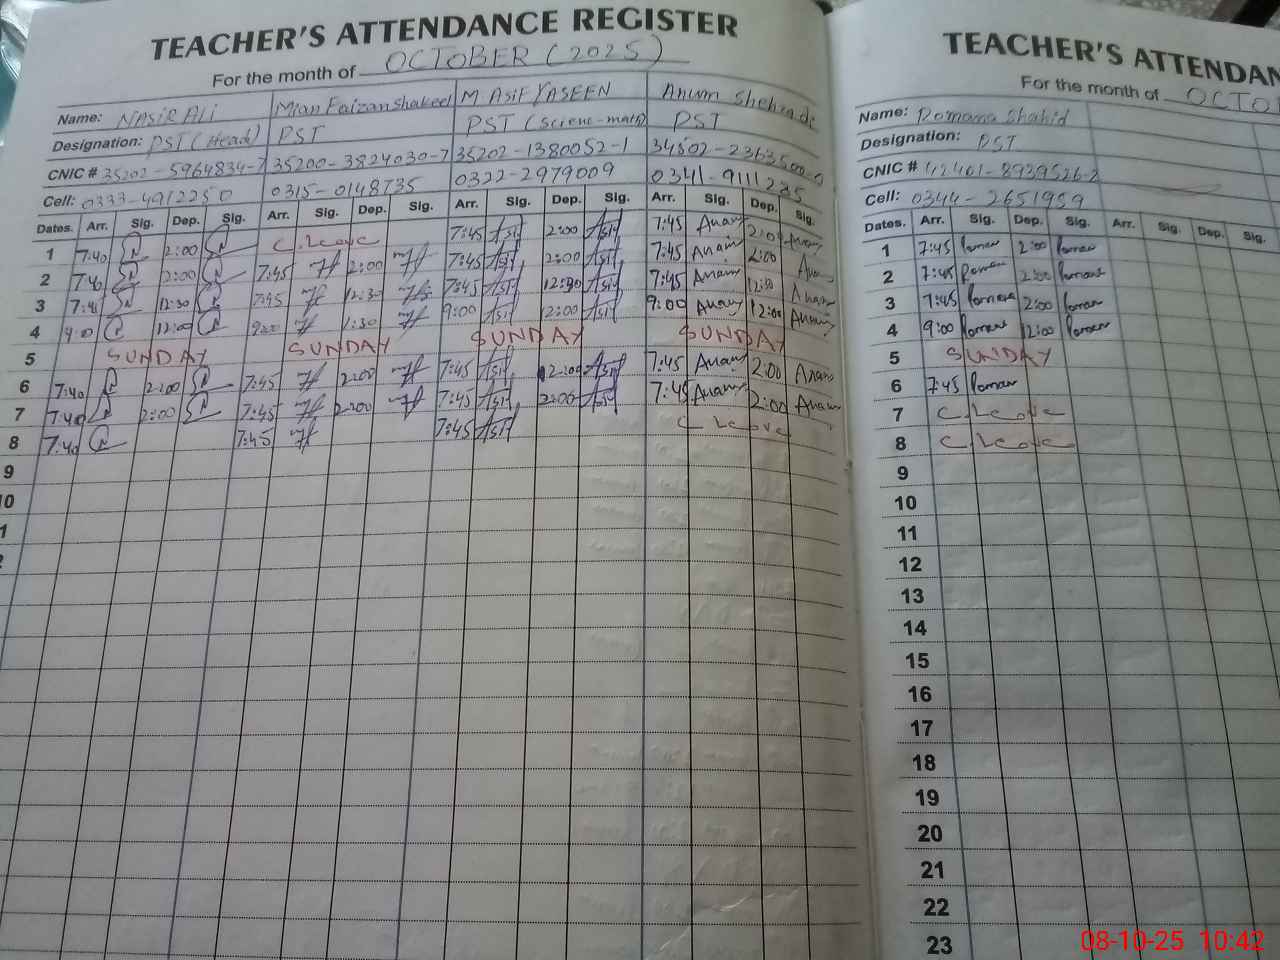 TEACHER'S ATTENDANCE REGISTER
For the month of OCTOBER (2025)
Name: NASIR ALI Mian Faizan Shakeel M ASIF YASEEN Anum Shehzadi
Designation: PST (Head) PST PST (Scienc-math) PST
CNIC # 35202-5964834-7 35200-3824030-7 35202-1380052-1 34502-2363500-
Cell: 0333-4912250 0315-0148735 0322-2979009 0341-9111235
Dates. Arr. Sig. Dep. Sig. Arr. Sig. Dep. Sig. Arr. Sig. Dep. Sig. Arr. Sig. Dep. Sig.
1 7:40 2:00 C.Leave 7:45 Asif 2:00 Asif 7:45 Anam 2:00 Anam
2 7:40 2:00 7:45 2:00 7:45 Asif 2:00 Asif 7:45 Anam 2:00 Anam
3 7:40 12:30 7:45 12:30 7:45 Asif 12:30 Asif 7:45 Anam Anam
4 9:00 12:00 9:00 1:30 9:00 Asif 12:00 Asif 9:00 Anam 12:00 Anam
5 SUNDAY SUNDAY SUNDAY SUNDAY
6 7:40 2:00 7:45 2:00 7:45 Asif 2:00 Asif 7:45 Anam 2:00 Anam
7 7:40 2:00 7:45 2:00 7:45 Asif 2:00 Asif 7:45 Anam 2:00 Anam
8 7:40 7:45 7:45 Asif C Leave
9
10
1
2
TEACHER'S ATTENDAN
For the month of OCTO
Name: Romana Shahid
Designation: PST
CNIC # 42401-8939526-2
Cell: 0344-2651959
Dates. Arr. Sig. Dep. Sig. Arr. Sig. Dep. Sig.
1 7:45 Roman 2:00 Roman
2 7:45 Roman 2:00 Roman
3 7:45 Roman 2:00 Roman
4 9:00 Roman 12:00 Roman
5 SUNDAY
6 7:45 Roman
7 C Leave
8 C Leave
9
10
11
12
13
14
15
16
17
18
19
20
21
22
23
08-10-25 10:42